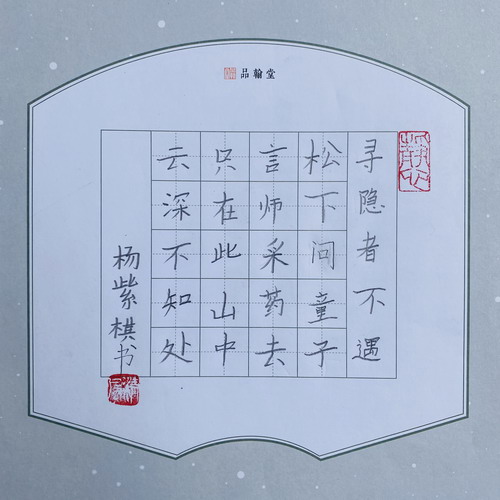 品翰堂
寻隐者不遇
松下问童子
言师采药去
只在此山中
云深不知处
杨紫棋书